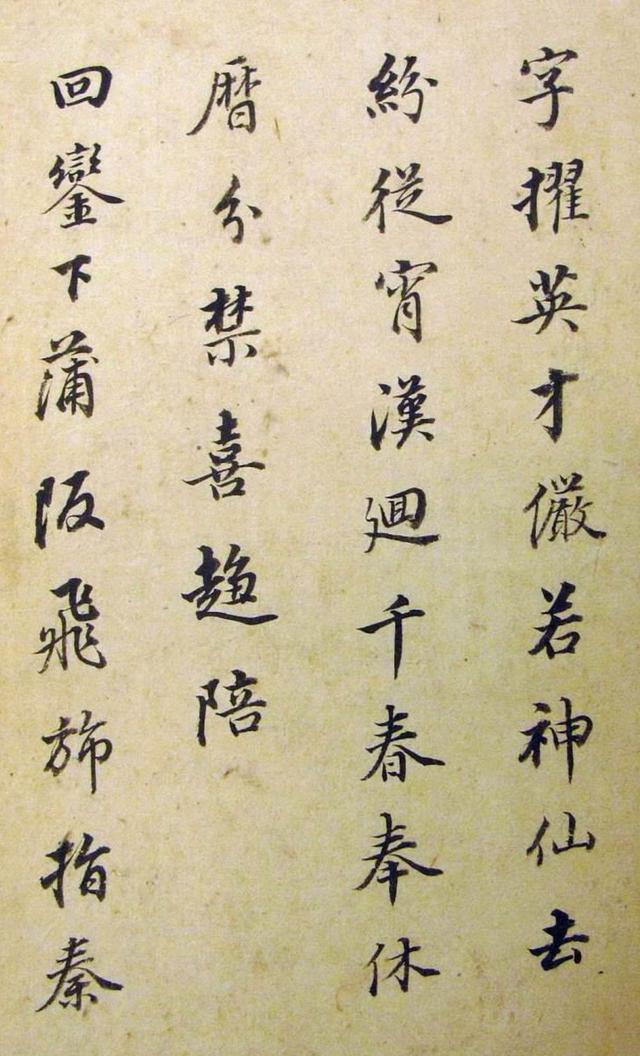 字擢英才儼若神仙去
紛從宵漢廻千春奉休
曆分禁喜趍陪
回鑾下蒲坂飛斾指秦